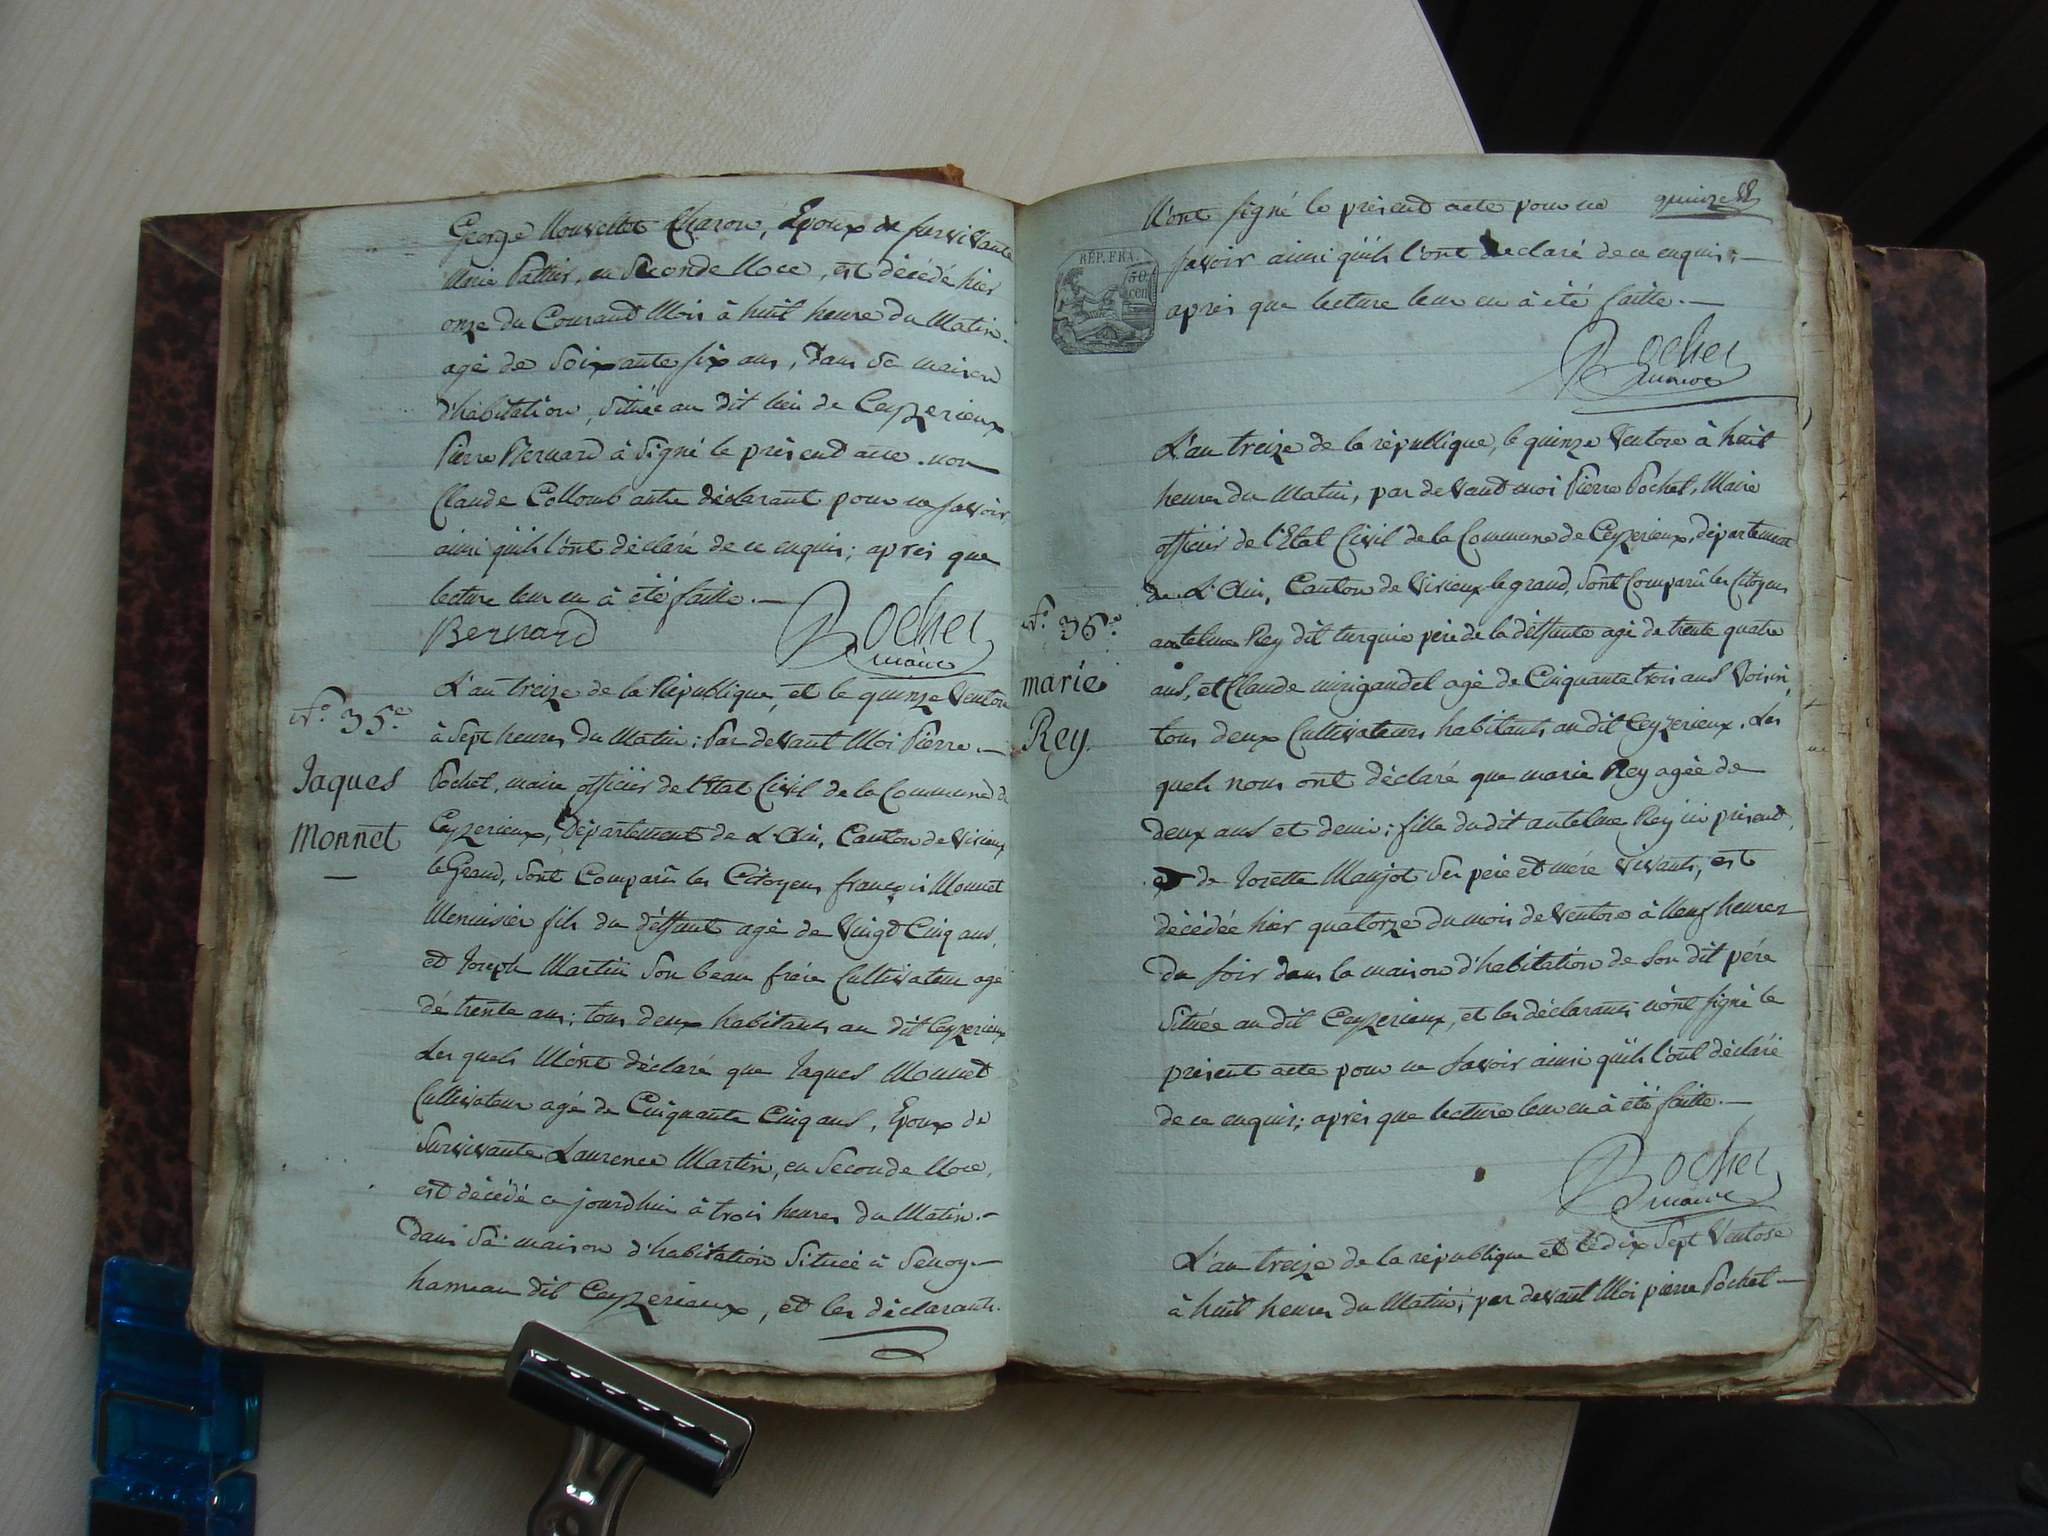 George Nouvellet Charon, Epoux de survivante
Marie Pattier, en Seconde Noce, est décédé hier
onze du Courant Mois à huit heure du Matin.
agé de Soixante six ans, dans Sa maison
d'habitation, Située au dit lieu de Ceyzerieux
Pierre Bernard à Signé le présent acte. non
Claude Collomb autre déclarant pour ne savoir,
ainsi qu'ils l'ont déclaré de ce enquis; après que
lecture leur en à été faitte.—
Bernard Pochet
maire
N.° 35.e
Jaques
Monnet
L'an treize de la République, et le quinze Ventose
à Sept heures du Matin; Par devant Moi Pierre.—
Pochet, maire officier de l'Etat Civil de la Commune de
Ceyzerieux, Département de L'Ain, Canton de Virieux
le Grand, Sont Comparûs les Citoyens françois Monnet
Menuisier fils du déffunt agé de Vingt Cinq ans,
et Joseph Martin Son beau frére Cultivateur agé
dé trente ans; tous deux habitants au dit Ceyzerieux
Les quels M'ont déclaré que Jaques Monnet
Cultivateur agé de Cinquante Cinq ans, Epoux de
Survivante Laurence Martin, en Seconde Noce,
est décédé ce jourdhui à trois heures du Matin.—
dans Sa maison d'habitation Située à
hameau dit Ceyzerieux, et les déclarants.
N'ont signé le présent acte pour ne quinze
RÉP. FRA.
50
cen
savoir ainsi qu'ils l'ont declaré de ce enquis;—
après que lecture leur en à été faitte.—
Pochet
maire
N.° 36.e
marie
Rey.
L'an treize de la république, le quinze Ventose à huit
heures du Matin, par devant moi Pierre Pochet, Maire
officier de l'Etat Civil de la Commune de Ceyzerieux, département
de L'Ain, Canton de Virieux-le grand, Sont Comparûs les Citoyens
antelme Rey dit turquie pére de la déffunte agé de trente quatre
ans, et Claude mirigaudel agé de Cinquante trois ans Voisin,
tous deux Cultivateurs habitants au dit Ceyzerieux. Les
quels nous ont déclaré que marie Rey agée de
deux ans et demi; fille du dit antelme Rey ici présent,
et de Jozette Maujot Ses pére et mére Vivants, est
décédée hier quatorze du mois de Ventose à Neuf heures
du soir dans la maison d'habitation de Son dit pére
Située au dit Ceyzerieux, et les déclarants n'ont signé le
présent acte pour ne Savoir ainsi qu'ils l'ont déclaré
de ce enquis; après que lecture leur en à été faitte.—
Pochet
maire
L'an treize de la république et le dix Sept Ventose
à huit heures du Matin; par devant Moi pierre Pochet—